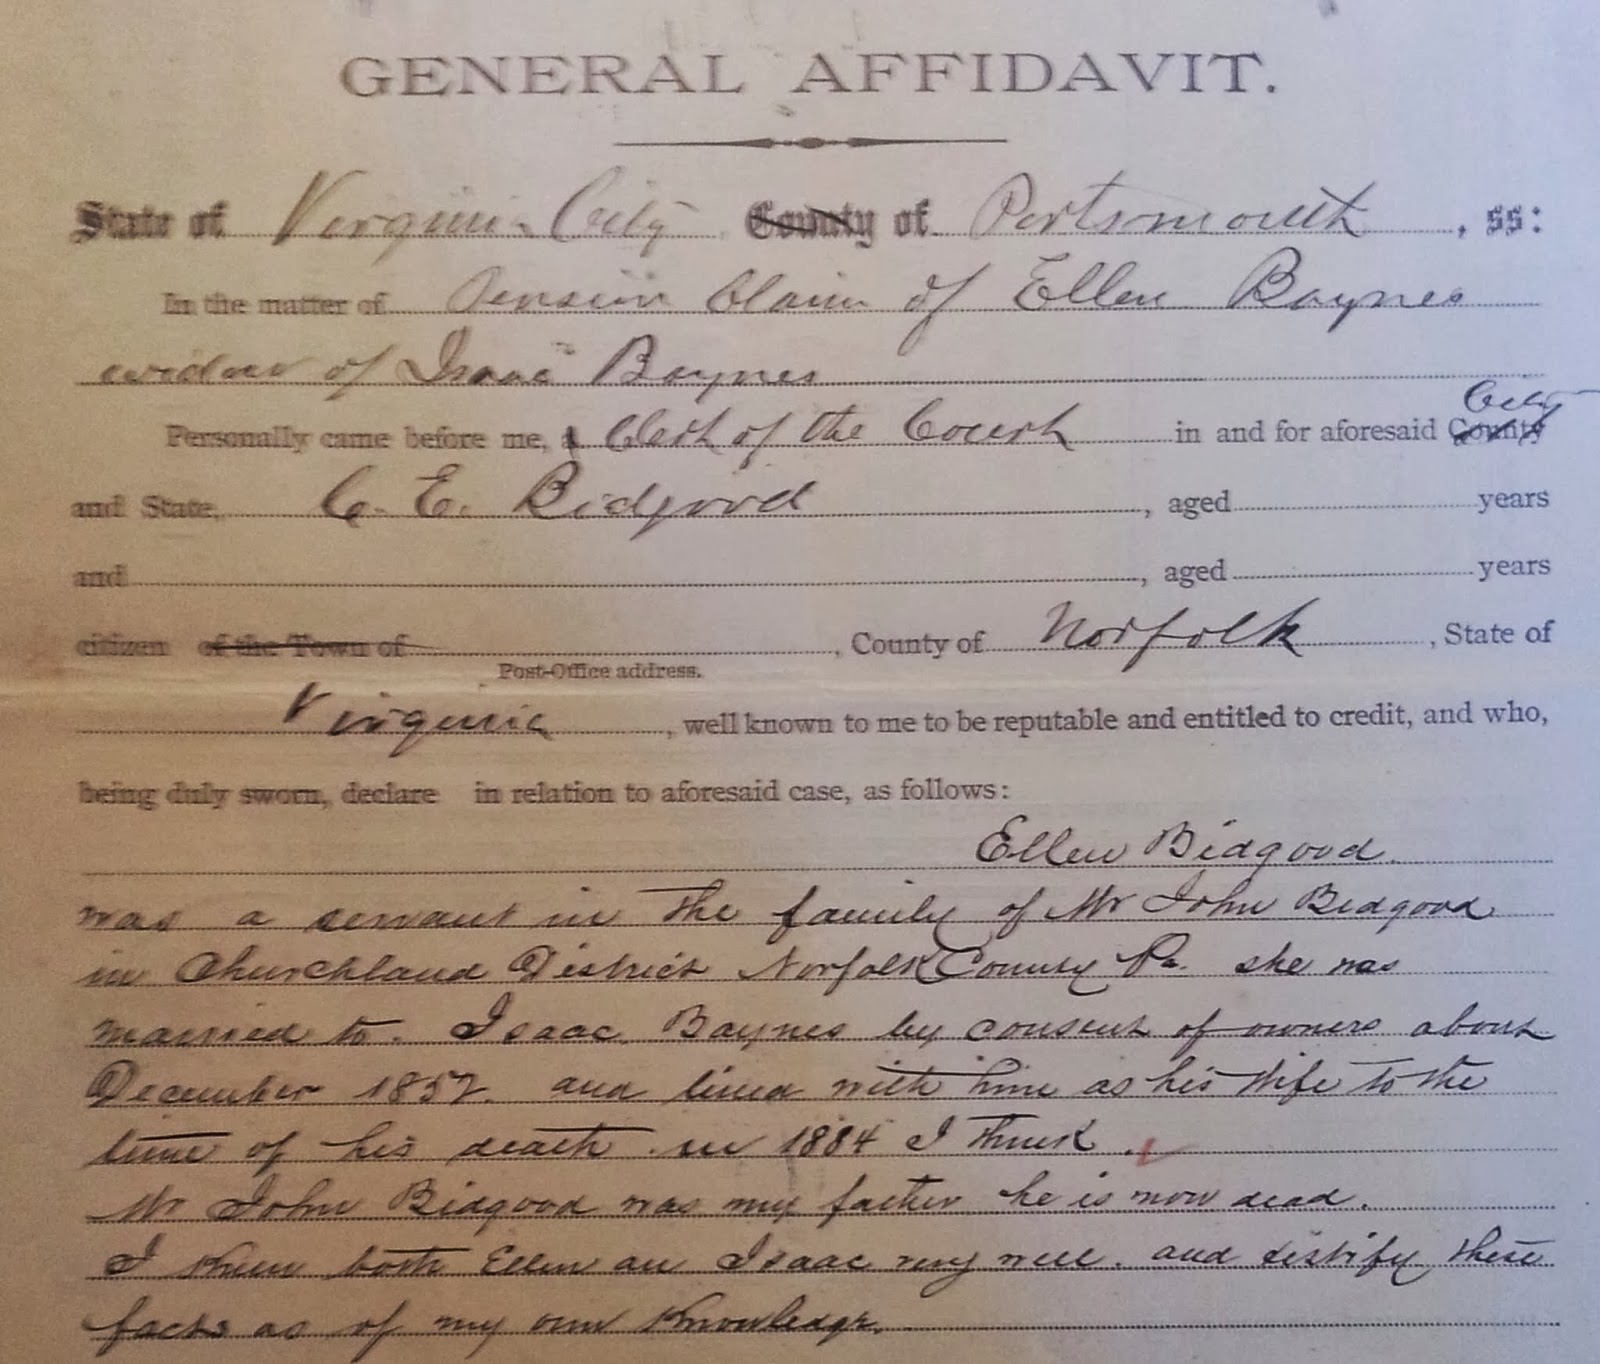 GENERAL AFFIDAVIT.
State of Virginia City County of Portsmouth, ss:
In the matter of Pension Claim of Ellen Baynes
widow of Isaac Baynes
City
Personally came before me, a Clerk of the Court in and for aforesaid County
and State, C. E. Bidgood, aged years
and , aged years
citizen of the Town of , County of Norfolk, State of
Post-Office address.
Virginia, well known to me to be reputable and entitled to credit, and who,
being duly sworn, declare in relation to aforesaid case, as follows:
Ellen Bidgood
was a servant in the family of Mr John Bidgood
in Churchland District Norfolk County Va. she was
married to. Isaac Baynes by consent of owners about
December 1852. and lived with him as his wife to the
time of his death in 1884 I think.
Mr John Bidgood was my father he is now dead.
I knew both Ellen an Isaac very well. and testify these
facts as of my own knowledge.